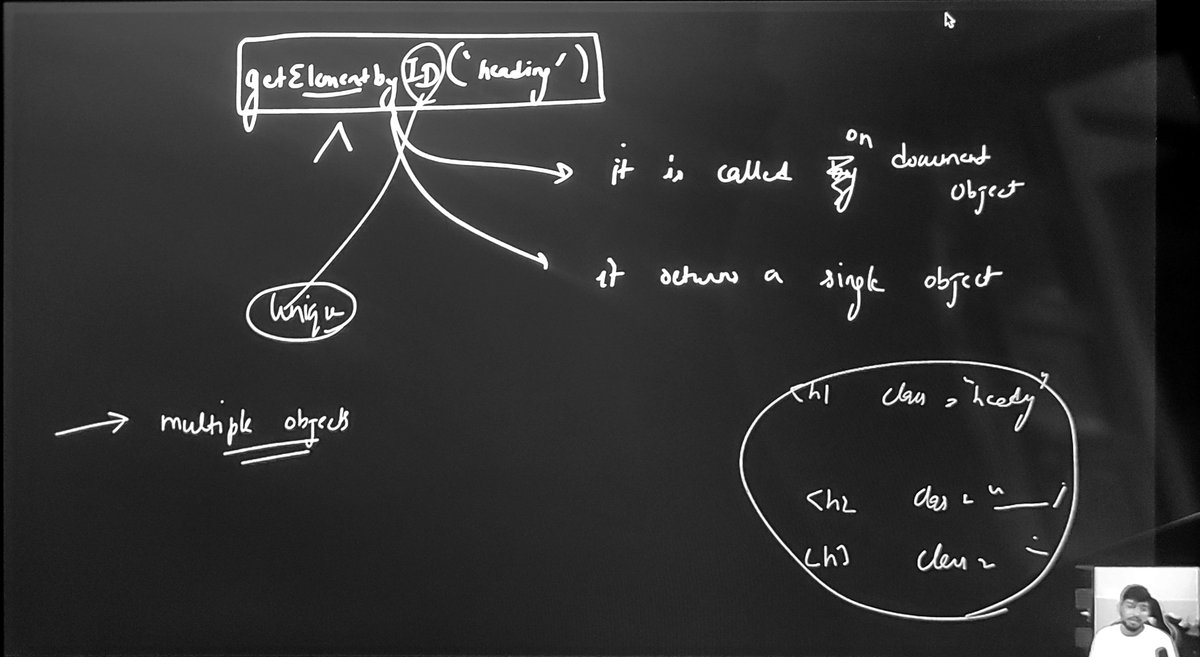 getElementby ID ('heading')
it is called on document
object
it returns a single object
Unique
multiple objects
<h1 class = "heady"
<h2 class = "
<h3 class =